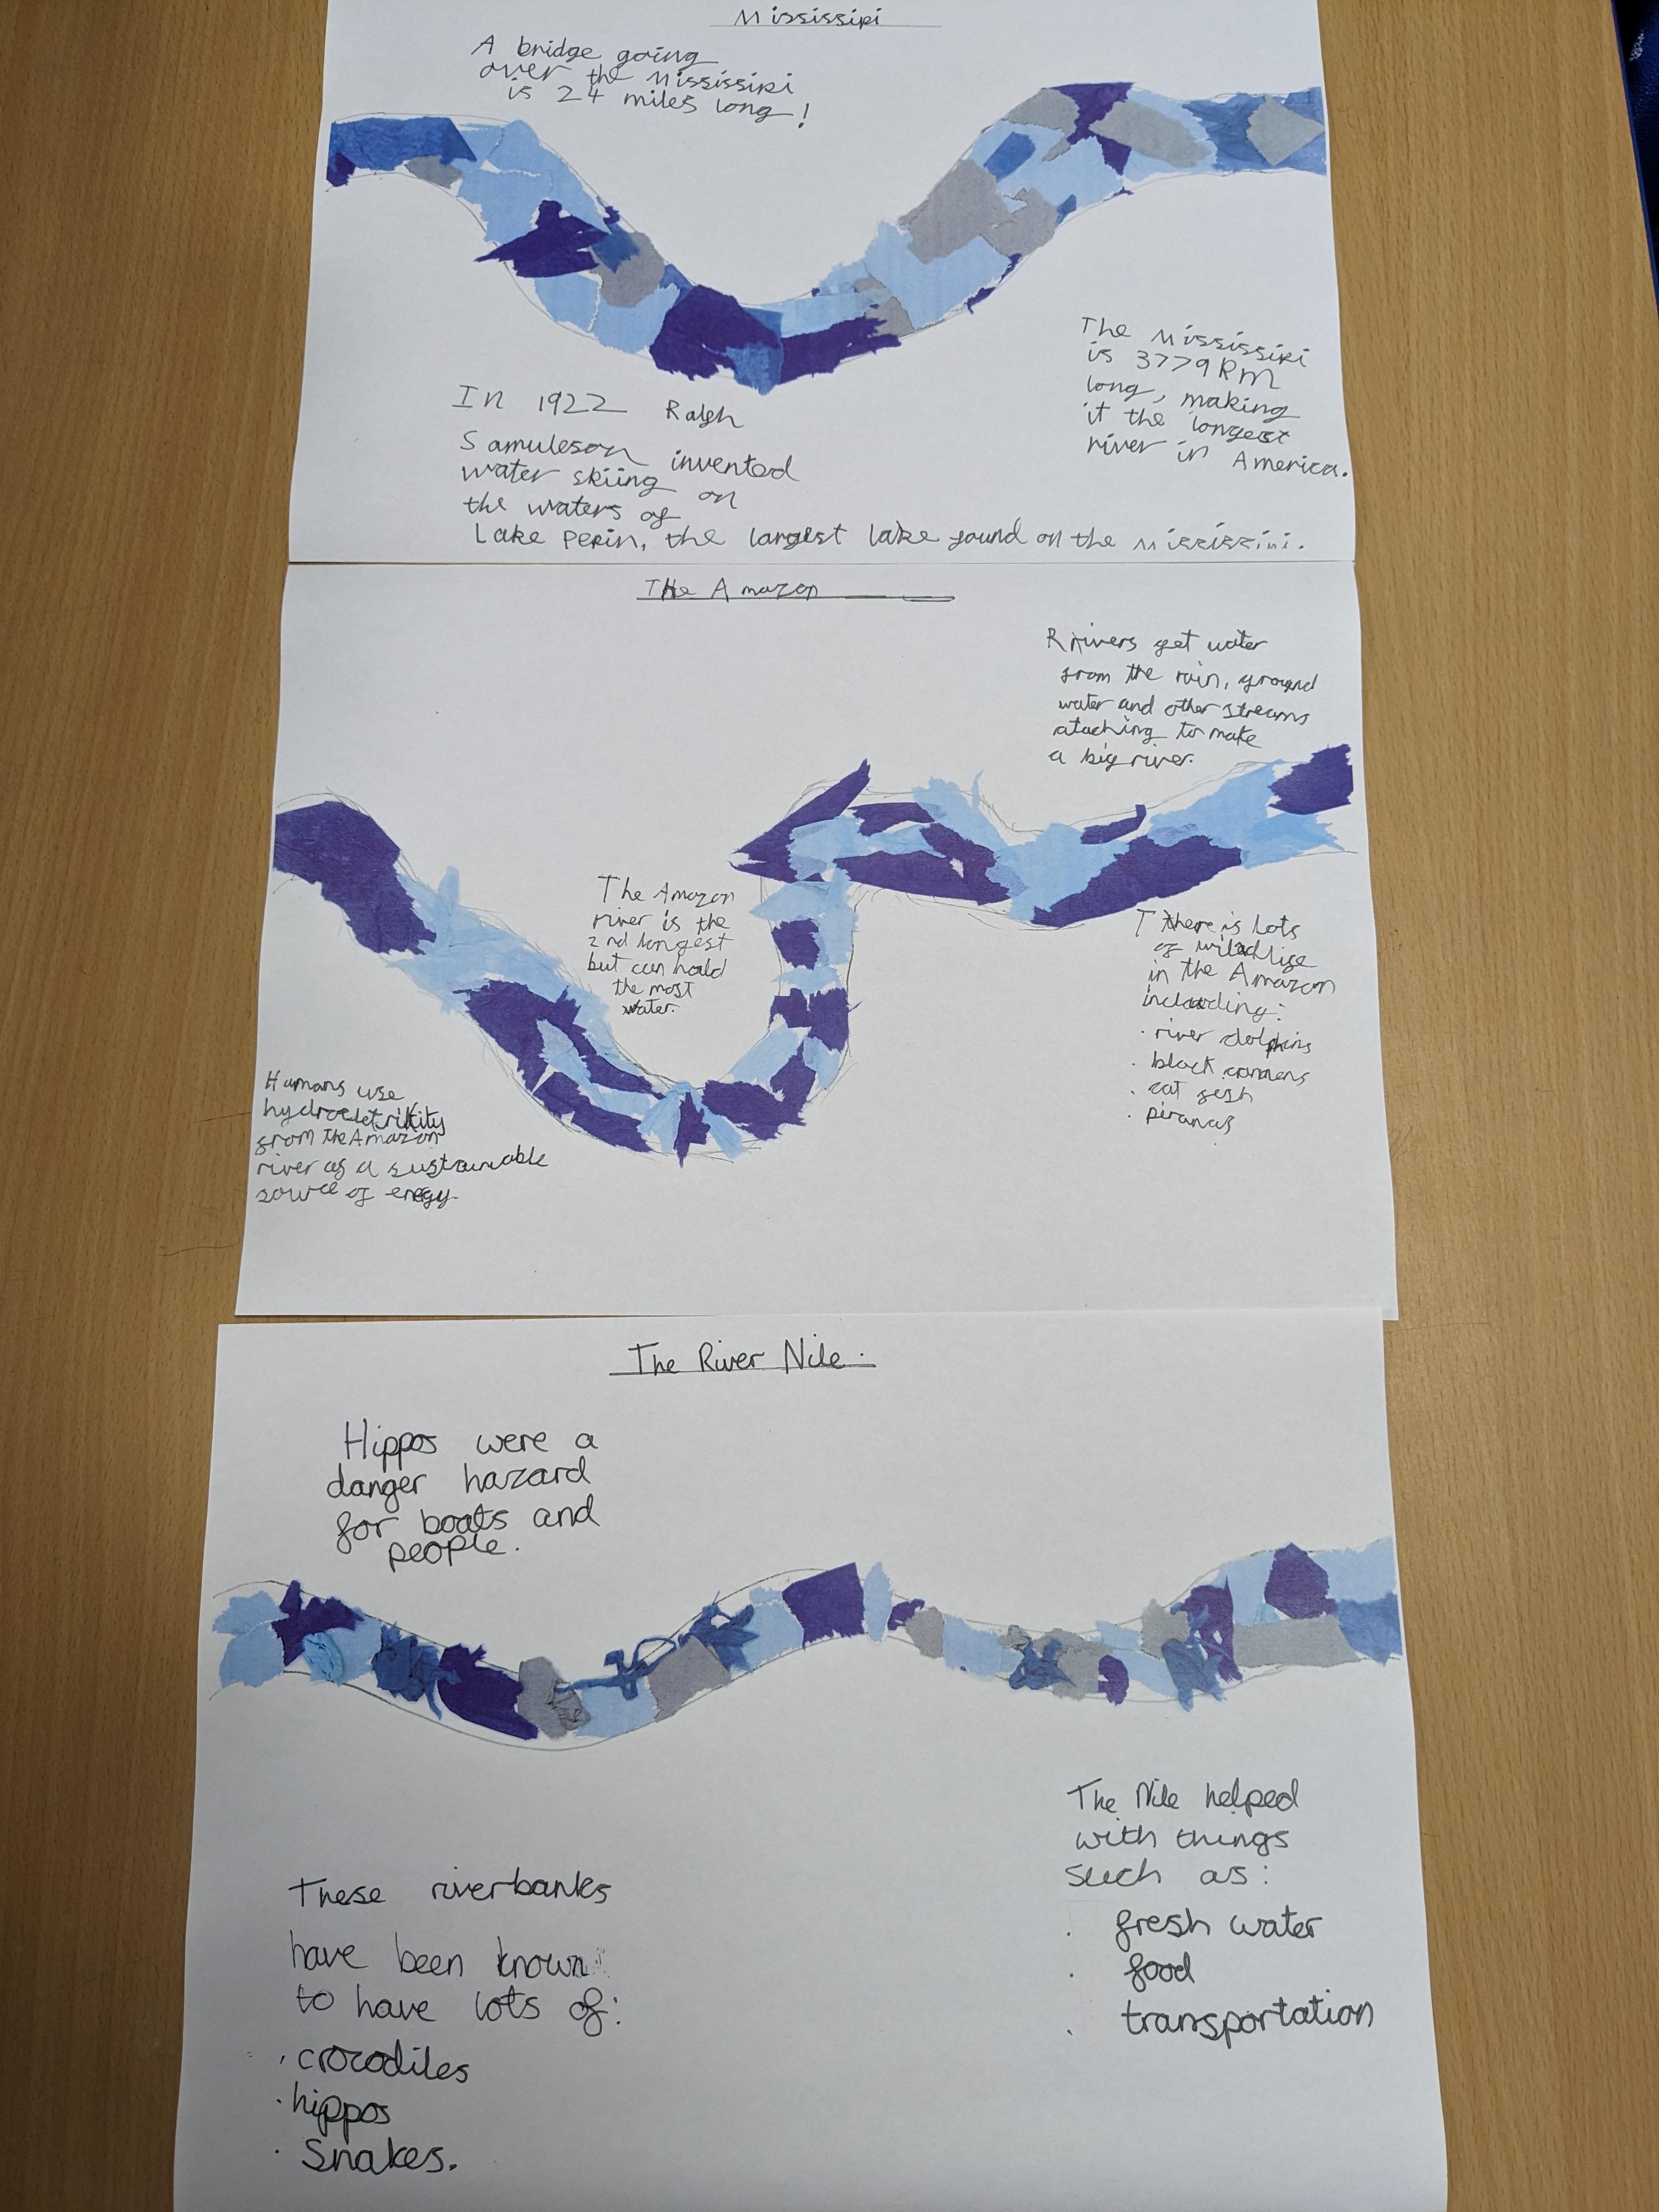 Mississipi
A bridge going
over the Mississipi
is 24 miles long!
The Mississipi
is 3779km
long, making
it the longest
river in America.
In 1922 Ralph
Samuleson invented
water skiing on
the waters of
Lake Pepin, the largest lake found on the Mississipi.
The Amazon
Rrivers get water
from the rain, ground
water and other streams
ataching to make
a big river.
The Amazon
river is the
2nd longest
but can hold
the most
water.
T there is lots
of wildlife
in the Amazon
including:
· river dolphins
· black caimens
· cat fish
· piranas
Humans use
hydroeletrikity
from the Amazon
river as a sustainable
source of enegy.
The River Nile.
Hippos were a
danger hazard
for boats and
people.
The Nile helped
with things
such as:
· fresh water
· food
· transportation
These riverbanks
have been known
to have lots of:
· crocodiles
· hippos
· Snakes.